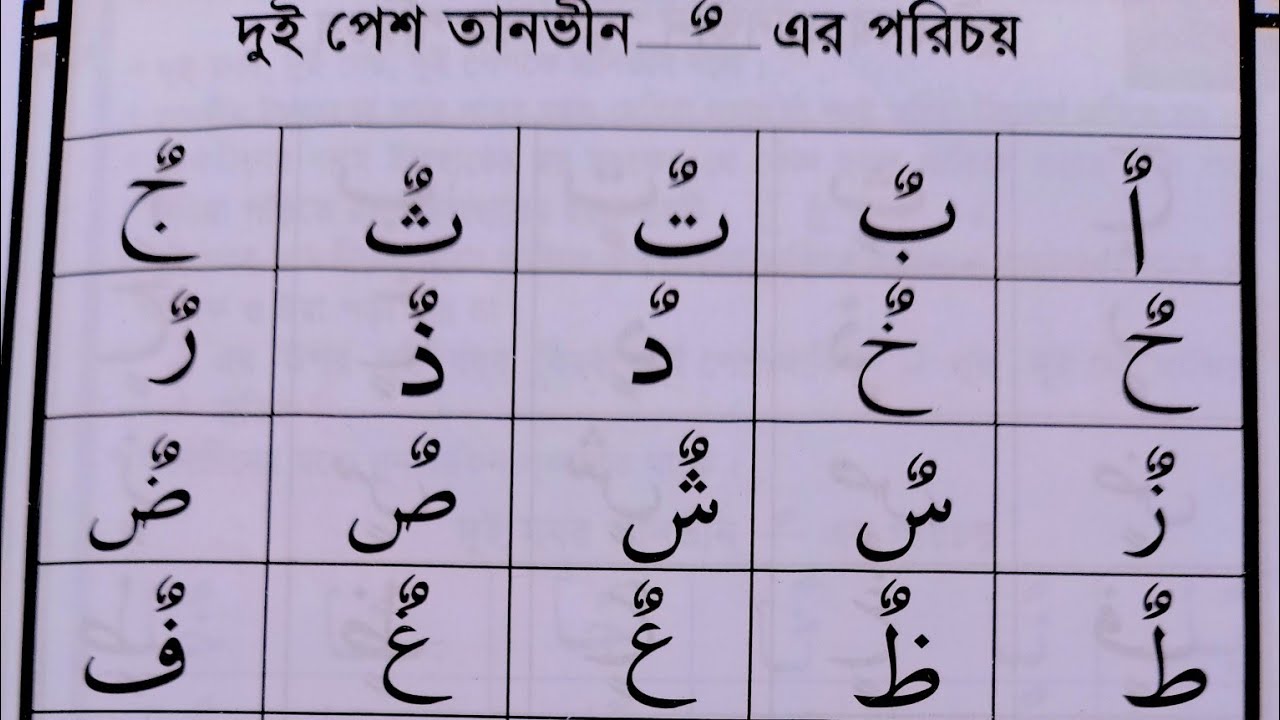 দুই পেশ তানভীন ـٌ এর পরিচয়
أٌ بٌ تٌ ثٌ جٌ
حٌ خٌ دٌ ذٌ رٌ
زٌ سٌ شٌ صٌ ضٌ
طٌ ظٌ عٌ غٌ فٌ